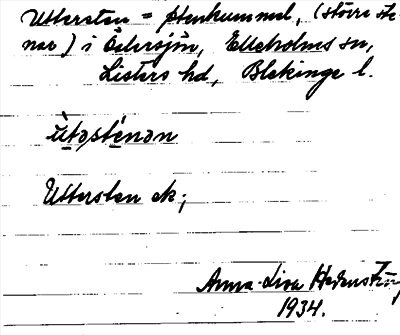 Uttersten = stenkummel, (större ste-
nar) i Östersjön, Elleholms sn,
Listers hd, Blekinge l.
ùtəsténən
Uttersten ek;
Anna-Lisa Hedenstång
1934.